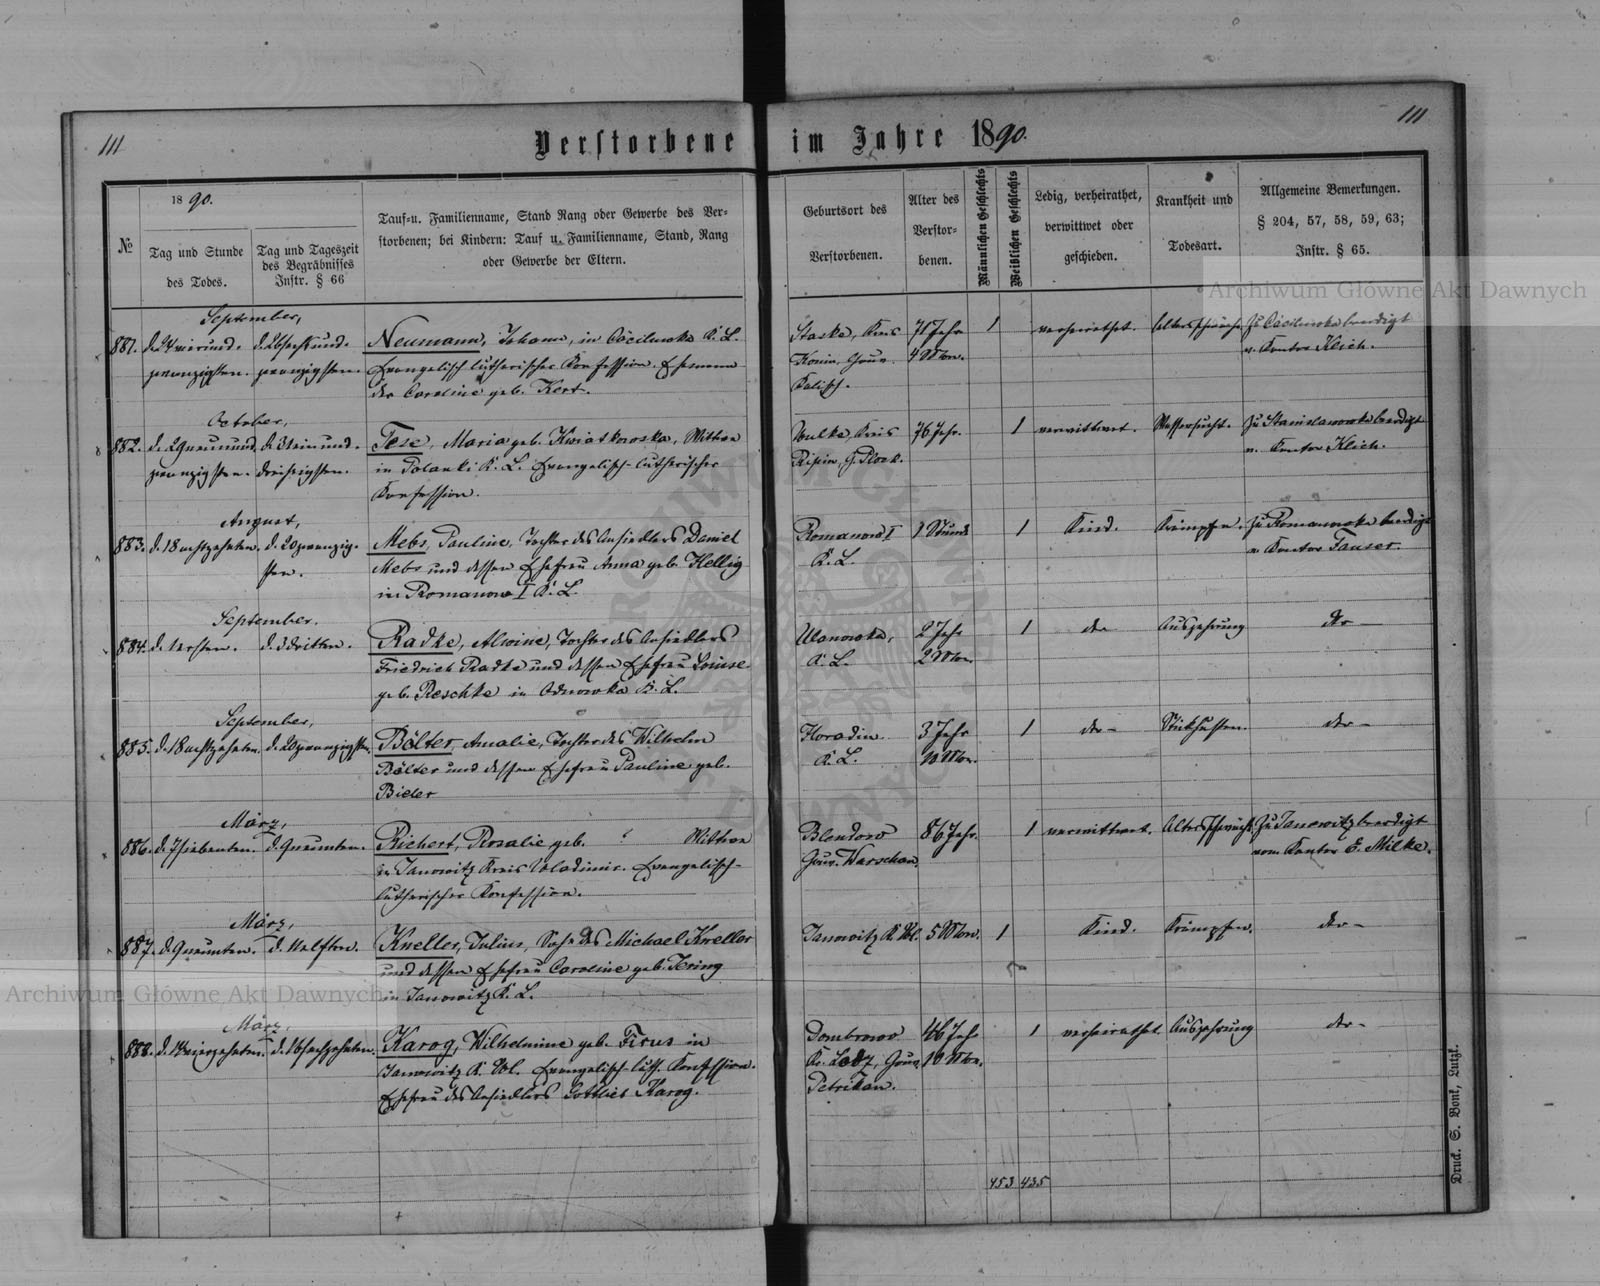 111
111
Verstorbene im Jahre 1890.
1890.
№
Tag und Stunde
des Todes.
Tag und Tageszeit
des Begräbnisses
Instr. § 66
Tauf-u. Familienname, Stand Rang oder Gewerbe des Ver-
storbenen; bei Kindern: Tauf u. Familienname, Stand, Rang
oder Gewerbe der Eltern.
Geburtsort des
Verstorbenen.
Alter des
Verstor-
benen.
Männlichen Geschlechts
Weiblichen Geschlechts
Ledig, verheirathet,
verwittwet oder
geschieden.
Krankheit und
Todesart.
Allgemeine Bemerkungen.
§ 204, 57, 58, 59, 63;
Instr. § 65.
Archiwum Główne Akt Dawnych
September,
881. d. 24 vierund- d. 26 sechsund- Neumann, Johann, in Cäcilinowka K. L. Staske, Kreis 71 Jahr 1 verheirathet. Altersschwäche. Zu Cäcilinowka beerdigt
zwanzigsten. zwanzigsten. Evangelisch-lutherischer Konfession. Ehemann Konin, Gouv. 4 Mon. v. Kantor Klich.
der Caroline geb. Kert. Kalisch.
October,
882. d. 29 neunund- d. 31 einund- Tese, Maria geb. Kwiatkowska, Wittwe Wulka, Kreis 76 Jahr. 1 verwittwet. Wassersucht. Zu Stanislawowka beerdigt
zwanzigsten. dreissigsten. in Polanki K. L. Evangelisch-lutherischer Ripin, G. Plock. v. Kantor Klich.
Konfession.
August,
883. d. 18 achtzehnten. d. 20 zwanzig- Mebs, Pauline, Tochter des Ansiedlers Daniel Romanow I 1 Stunde 1 Kind. Krämpfe. Zu Romanowka beerdigt
sten. Mebs und dessen Ehefrau Anna geb. Hellig K. L. v. Kantor Tauser.
in Romanow I K. L.
September.
884. d. 1 ersten. d. 3 dritten. Radke, Alwine, Tochter des Ansiedlers 2 Jahr 1 dto- Auszehrung dto-
Friedrich Radke und dessen Ehefrau Louise K. L. 2 Mon.
geb. Reschke in K. L.
September,
885. d. 18 achtzehnten. d. 20 zwanzigsten. Bölter, Amalie, Tochter des Wilhelm Horadin 3 Jahr 1 dto- Stickhusten. dto-
Bölter und dessen Ehefrau Pauline geb. K. L. 10 Mon.
Bieler
März,
886. d. 7 siebenten. d. 9 neunten. Richert, Rosalie geb. ? Wittwe Blendowo 86 Jahr. 1 verwittwet. Altersschwäche Zu Janowitz beerdigt
in Janowitz Kreis Wladimir. Evangelisch- Gouv. Warschau. vom Kantor E. Milke.
lutherischer Konfession.
März,
887. d. 9 neunten. d. 11 elften. Kneller, Julius, Sohn des Michael Kneller Janowitz K. Wl. 5 Mon. 1 Kind. Krämpfen. dto-
und dessen Ehefrau Caroline geb. Jering
in Janowitz K. L.
Archiwum Główne Akt Dawnych
März,
888. d. 14 vierzehnten. d. 16 sechzehnten. Karog, Wilhelmine geb. Ficus in Dombrowo 46 Jahr 1 verheirathet Auszehrung dto-
Janowitz K. Wl. Evangelisch-luth. Konfession. Kr. Lodz, Gouv. 10 Mon.
Ehefrau des Ansiedlers Gottlieb Karog. Petrikau.
453 435
Druck. S. Bonk, Lutzk.